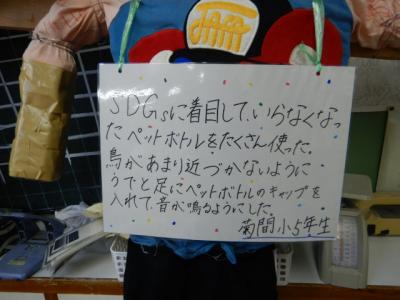 SDGsに着目して、いらなくなっ
たペットボトルをたくさん使った。
鳥があまり近づかないように
うでと足にペットボトルのキャップを
入れて、音が鳴るようにした。
菊間小5年生